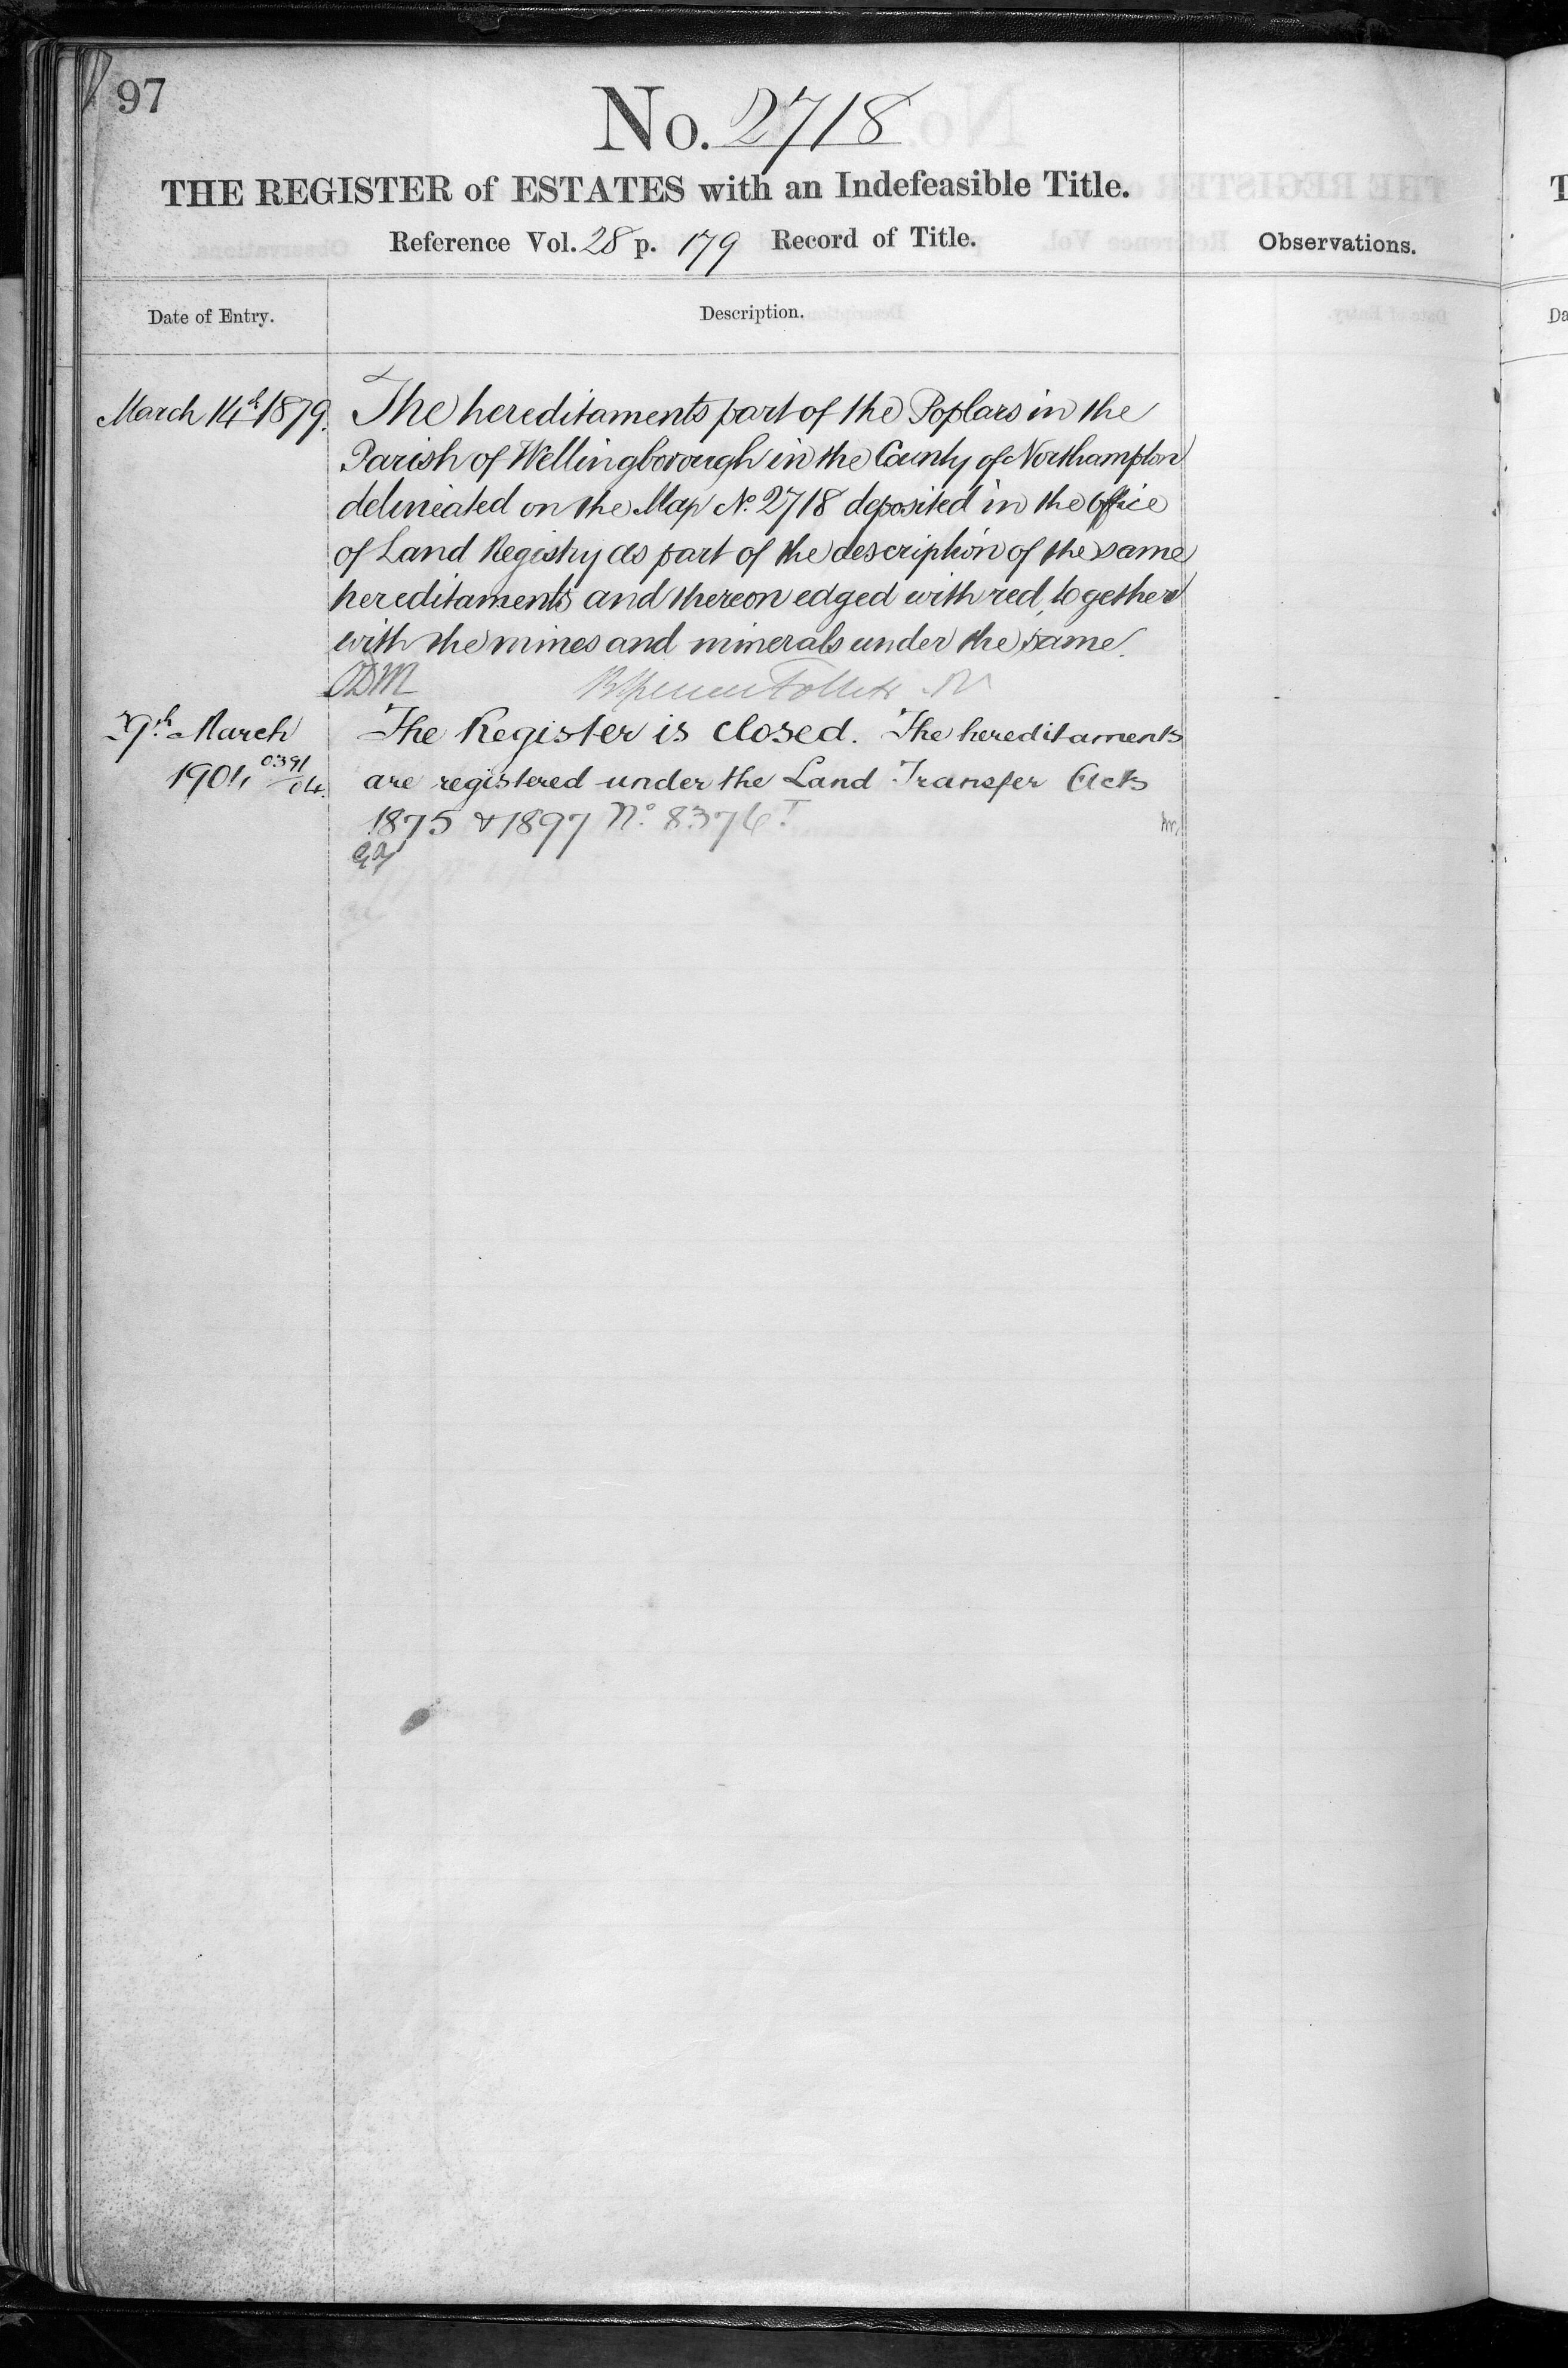 97
No. 2718
THE REGISTER of ESTATES with an Indefeasible Title.
Reference Vol. 28 p. 179 Record of Title.
Observations.
Date of Entry.
Description.
March 14th 1879.
The hereditaments part of the Poplars in the
Parish of Wellingborough in the County of Northampton
delineated on the Map No. 2718 deposited in the Office
of Land Registry as part of the description of the same
hereditaments and thereon edged with red, together
with the mines and minerals under the same.
Follett
March
1904
0391/04
The Register is closed. The hereditaments
are registered under the Land Transfer Acts
1875 & 1897 No.